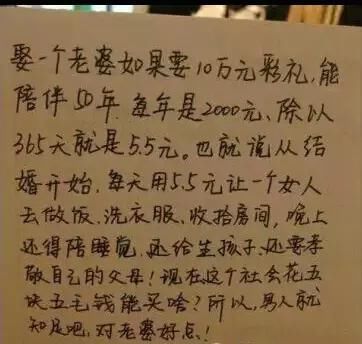 娶一个老婆如果要10万元彩礼,能
陪伴50年.每年是2000元、除以
365天就是5.5元。也就说从结
婚开始.每天用5.5元让一个女人
去做饭、洗衣服、收拾房间,晚上
还得陪睡觉、还给生孩子、还要孝
敬自己的父母!现在这个社会花五
块五毛钱能买啥?所以,男人就
知足吧,对老婆好点.!